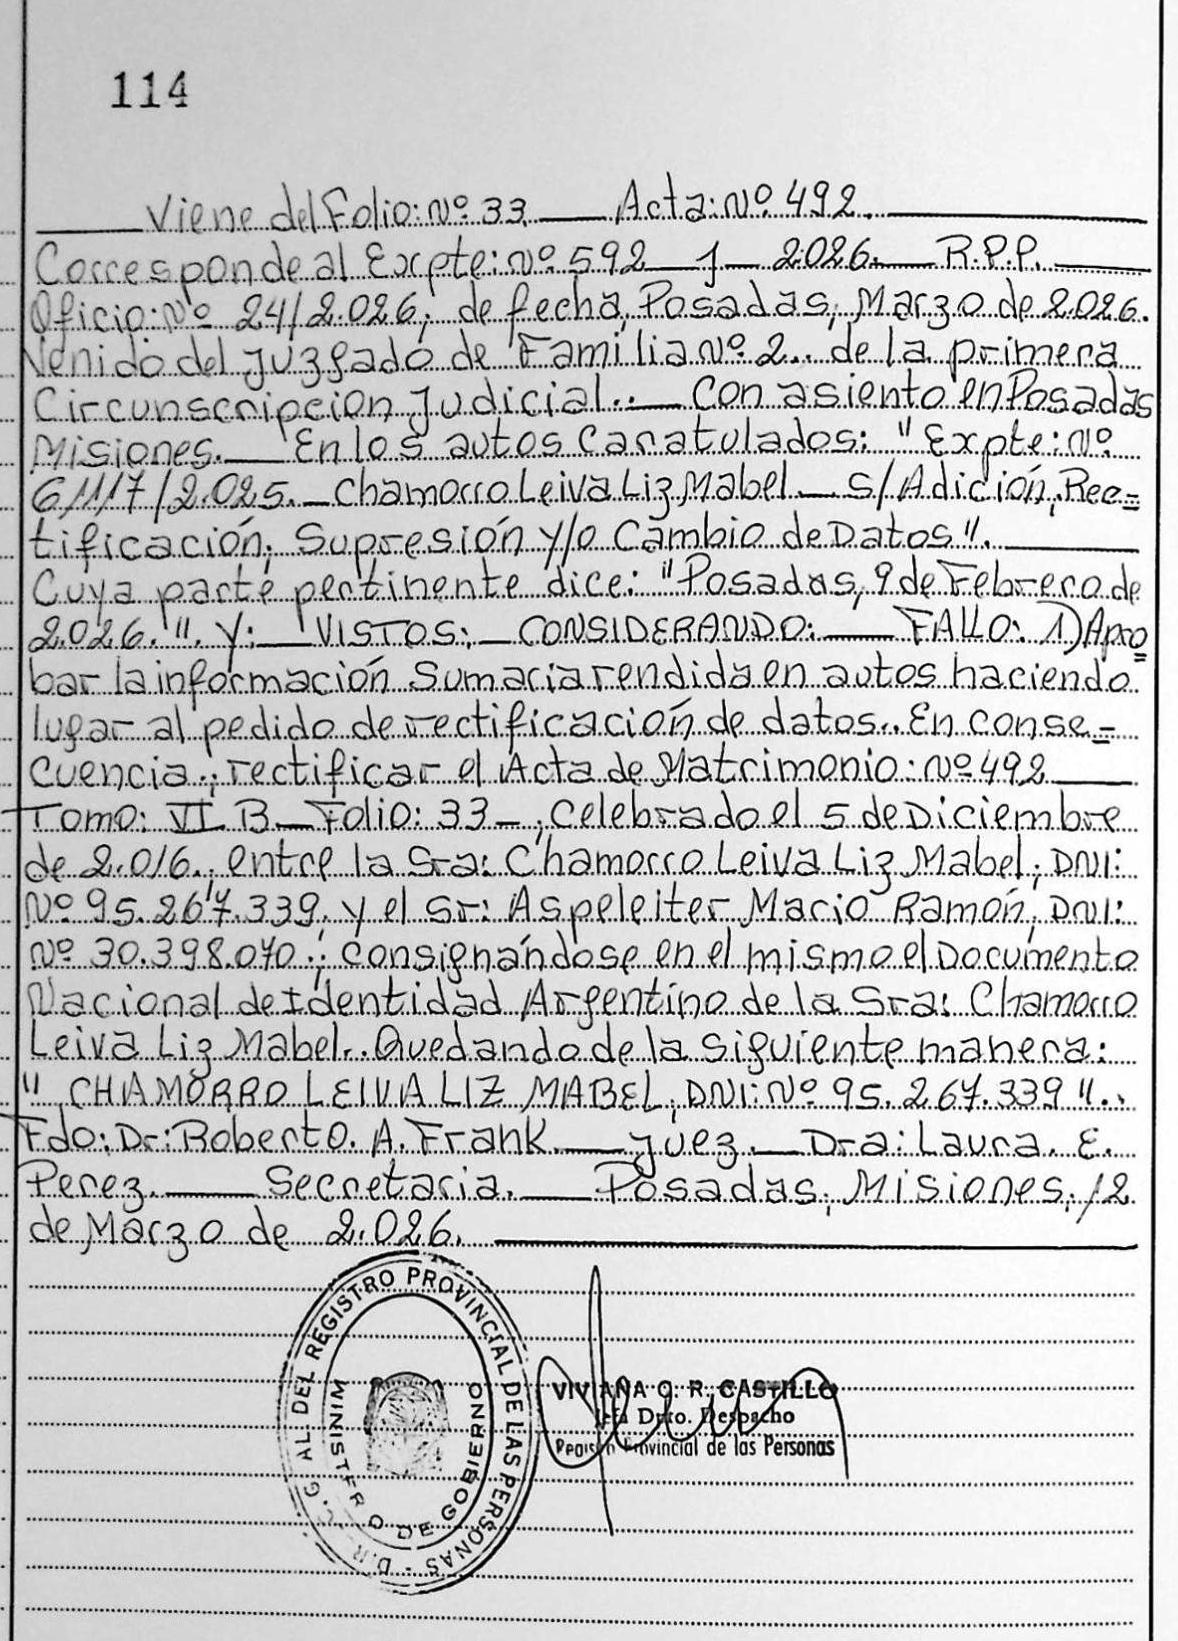 114
Viene del Folio: Nº 33. Acta: Nº 492.
Corresponde al Expte: Nº 592 - J - 2.026. R.P.P.
Oficio: Nº 24/2.026, de fecha, Posadas, Marzo de 2.026.
Venido del Juzgado de Familia Nº 2.. de la primera
Circunscripcion Judicial.. Con asiento en Posadas
Misiones. En los autos Caratulados: "Expte: Nº
61117/2.025. Chamorro Leiva Liz Mabel S/Adición, Rec=
tificación, Supresión y/o Cambio de Datos".
Cuya parte pertinente dice: "Posadas, 9 de Febrero de
2.026.". Y; VISTOS; CONSIDERANDO: FALLO: 1) Apro=
bar la información Sumaria rendida en autos haciendo
lugar al pedido de rectificación de datos.. En conse=
cuencia.; rectificar el Acta de Matrimonio: Nº 492
Tomo: VI B Folio: 33 -; celebrado el 5 de Diciembre
de 2.016., entre la Sra: Chamorro Leiva Liz Mabel; DNI:
Nº 95.267.339, y el Sr: Aspeleiter Mario Ramón, DNI:
Nº 30.398.070.; Consignándose en el mismo el Documento
Nacional de Identidad Argentino de la Sra: Chamorro
Leiva Liz Mabel.. Quedando de la siguiente manera:
" CHAMORRO LEIVA LIZ MABEL, DNI: Nº 95.267.339 "..
Fdo: Dr: Roberto. A. Frank. Juez. Dra: Laura. E.
Perez. Secretaria. Posadas, Misiones, 12
de Marzo de 2.026.
G AL DEL REGISTRO PROVINCIAL DE LAS PERSONAS
MINISTERIO DE GOBIERNO
VIVIANA O. R. CASTILLO
Jefa Dpto. Despacho
Registro Provincial de las Personas